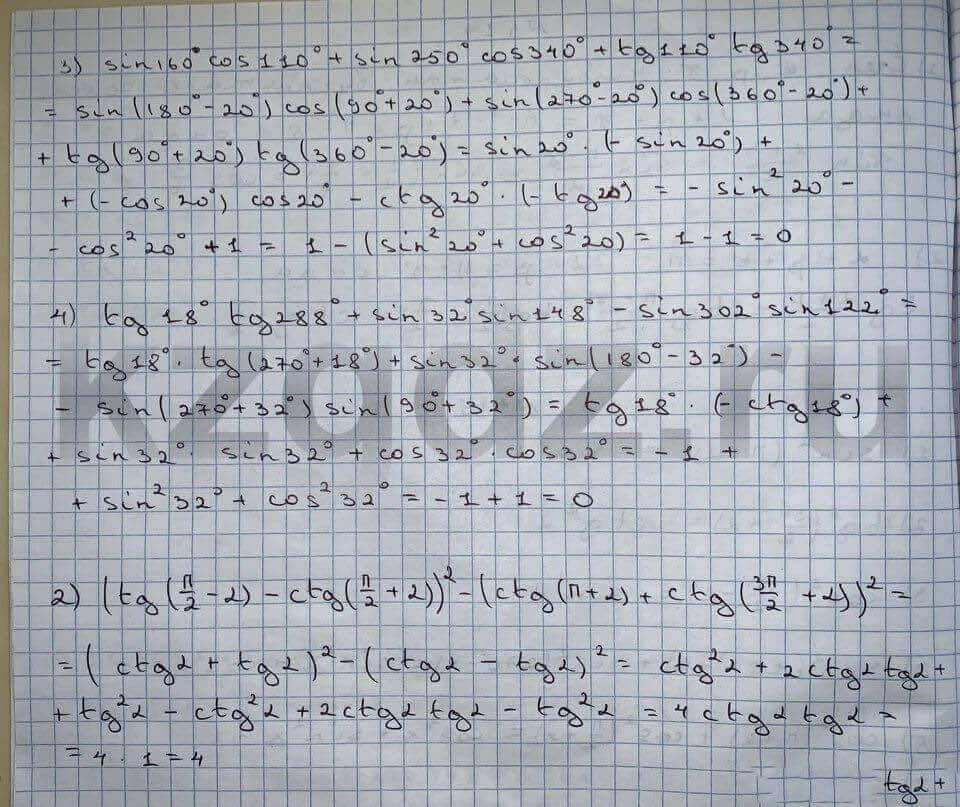 3) sin160° cos110° + sin250° cos340° + tg110° tg340° =
= sin(180°-20°) cos(90°+20°) + sin(270°-20°) cos(360°-20°) +
+ tg(90°+20°) tg(360°-20°) = sin20° · (- sin20°) +
+ (-cos20°) cos20° - ctg20° · (- tg20) = - sin²20° -
- cos²20° + 1 = 1 - (sin²20° + cos²20) = 1 - 1 = 0
4) tg18° tg288° + sin32° sin148° - sin302° sin122° =
= tg18° · tg(270°+18°) + sin32° · sin(180°-32°) -
- sin(270°+32°) sin(90°+32°) = tg18° · (- ctg18°) +
+ sin32° · sin32° + cos32° · cos32° = - 1 +
+ sin²32° + cos²32° = - 1 + 1 = 0
2) (tg(π/2 - α) - ctg(π/2 + α))² - (ctg(π+α) + ctg(3π/2 + α))² =
= (ctgα + tgα)² - (ctgα - tgα)² = ctg²α + 2ctgα tgα +
+ tg²α - ctg²α + 2ctgα tgα - tg²α = 4ctgα tgα =
= 4 · 1 = 4
tgα +
kzgdz.ru